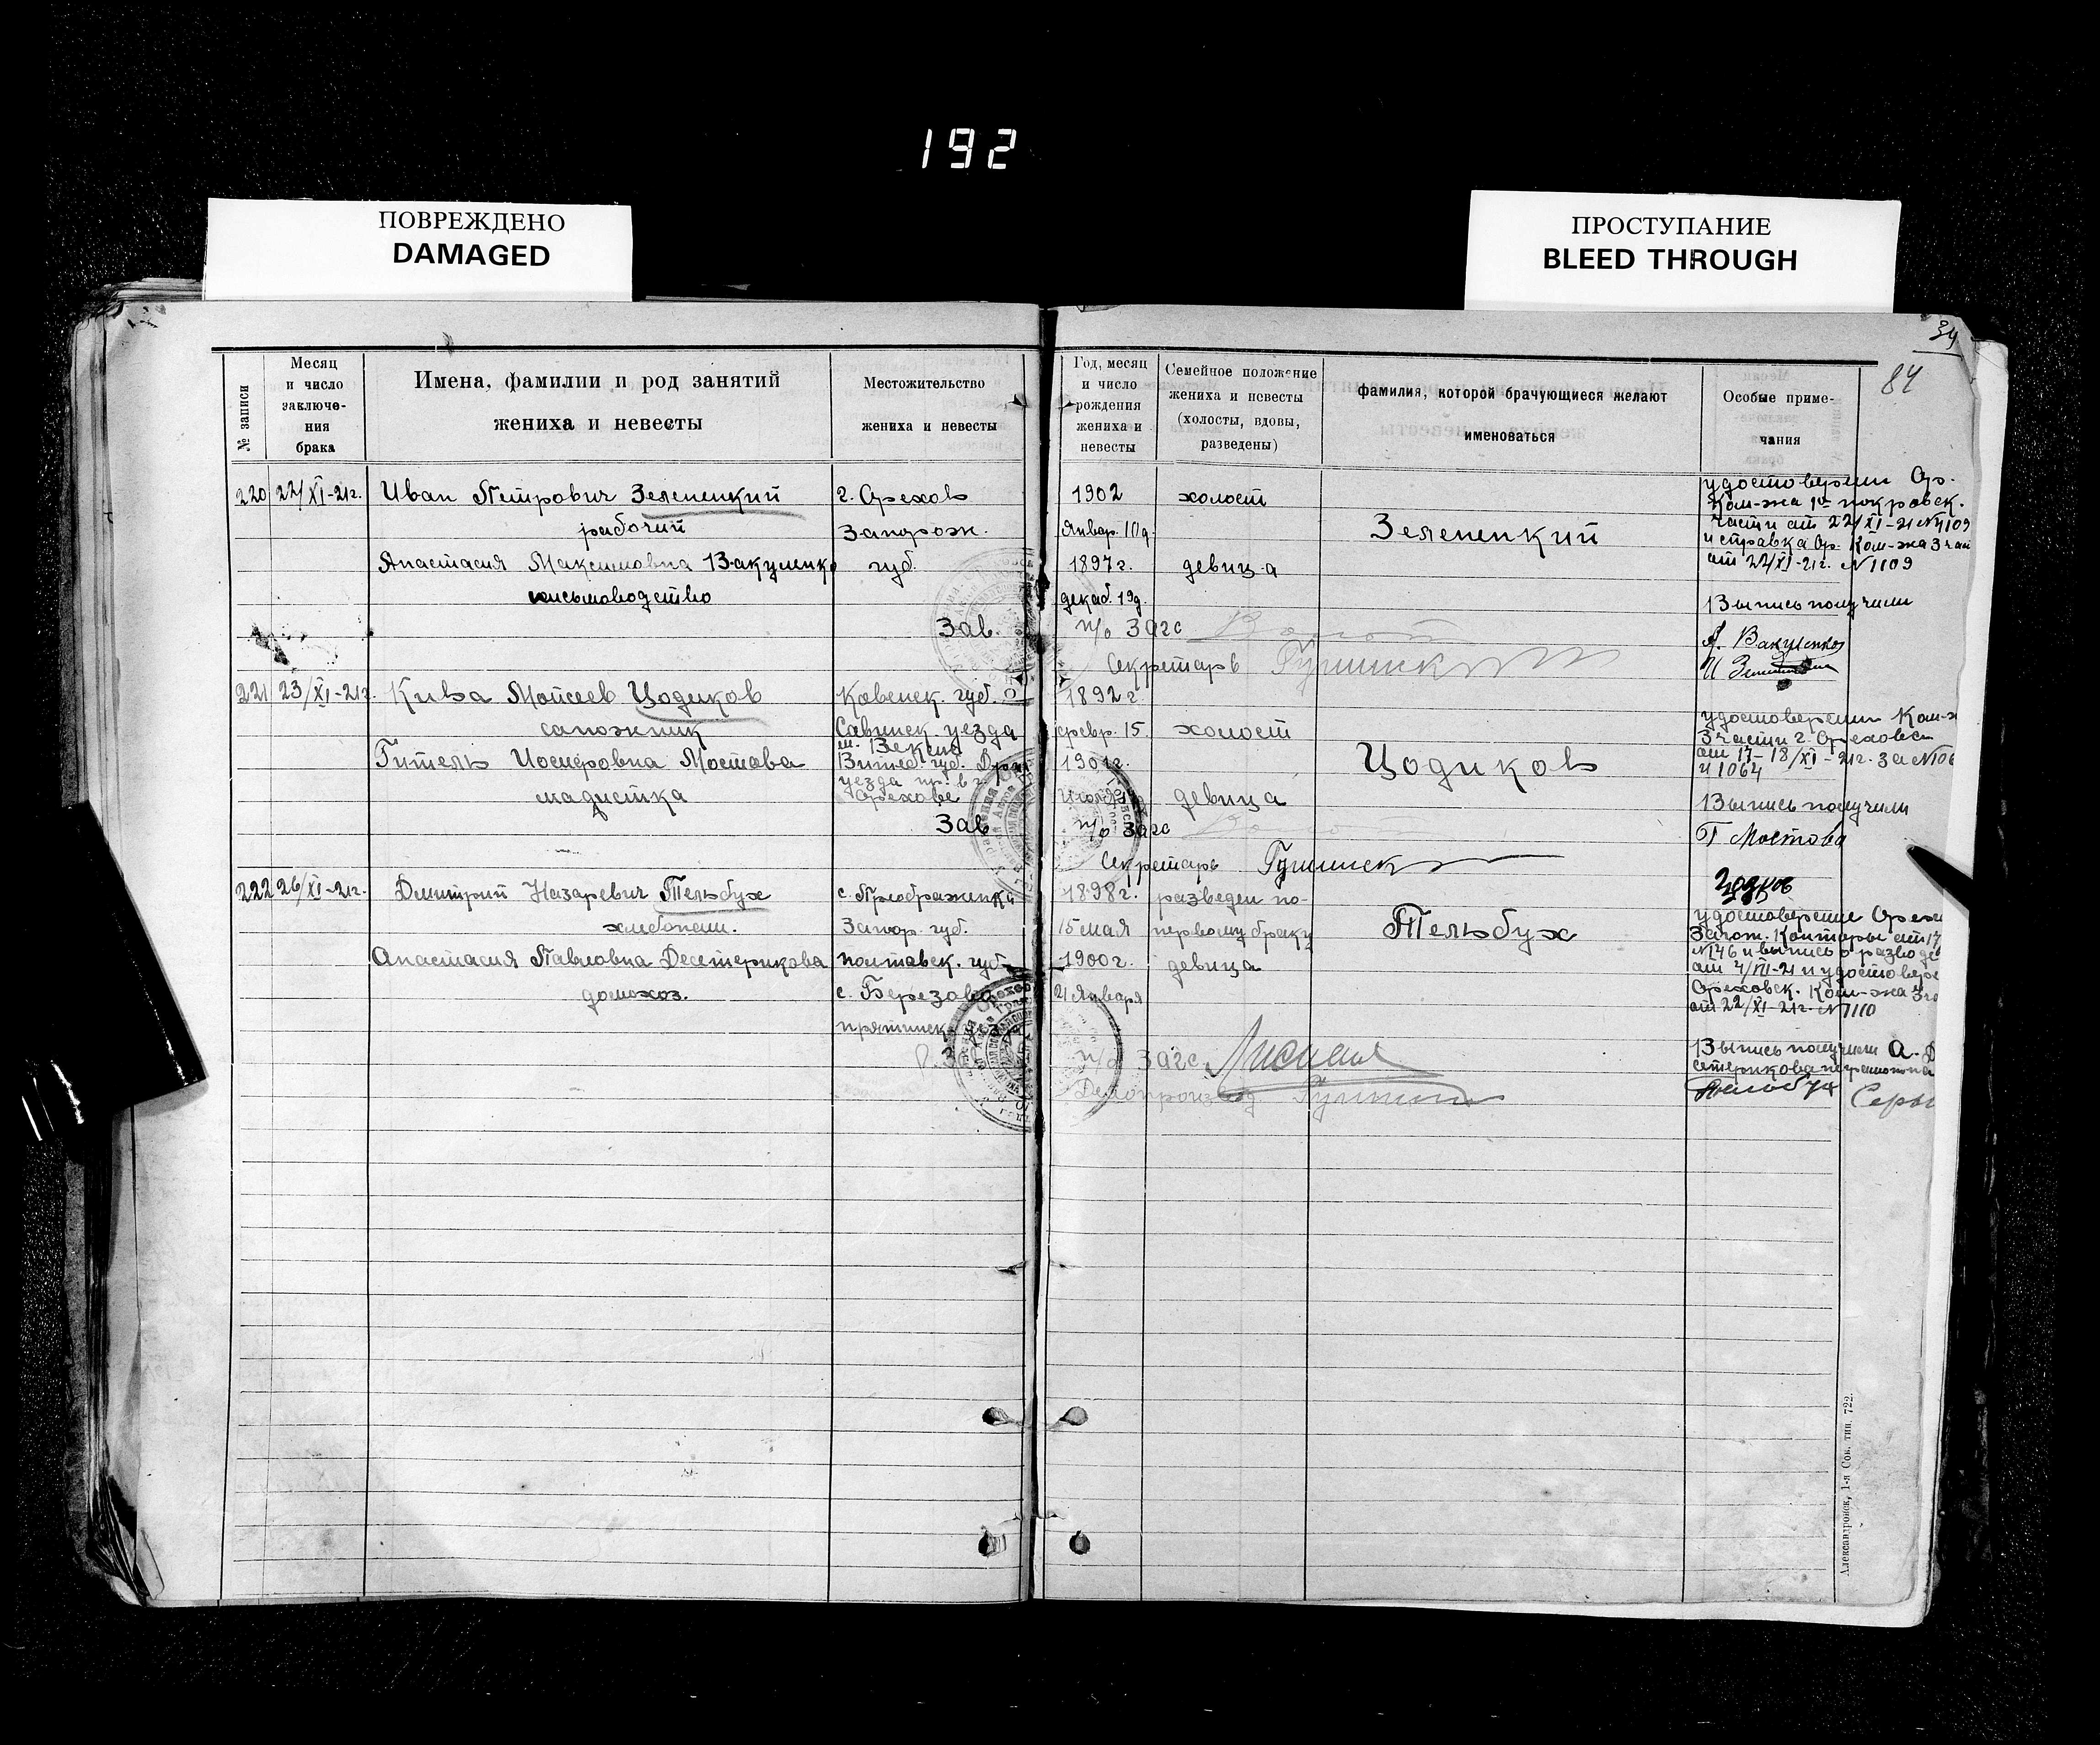 192
ПОВРЕЖДЕНО
DAMAGED
ПРОСТУПАНИЕ
BLEED THROUGH
34
84
№ записи
Месяц и число заключе- ния брака
Имена, фамилии и род занятий жениха и невесты
Местожительство жениха и невесты
Год, месяц и число рождения жениха и невесты
Семейное положение жениха и невесты (холосты, вдовы, разведены)
фамилия, которой брачующиеся желают именоваться
Особые приме- чания
220 22/XI-21г. Иван Петрович Зеленецкий г. Орехов 1902 холост
рабочий Запорож. Январ. 10д. Зеленецкий
Анастасия Максимовна Вакуленко губ. 1897г. девица
письмоводство декаб. 19д.
Зав. п/о Загс
Секретарь
удостоверении Ор.
Ком-жа 1й покровск.
части от 22/XI-21 №1109
и справка Ор. Ком-жа 3 час
от 22/XI-21г. №1109
Выпись получили
А. Вакуленко
221 23/XI-21г. Кива Мойсеев Цодиков Ковенск. губ. 1892 г.
сапожник уезда февр. 15 холост
Гитель Иосифовна Мостова Витеб губ. 1901г. Цодиков
уезда пр. в г.
модистка Орехове девица
Зав п/о Загс
Секретарь
удостоверении Ком-ж
3 части г. Ореховск
от 17-18/XI-21г. за №106
и 1064
Выпись получили
Г Мостова
222 26/XI-21г. Дмитрий Назаревич Тельбух с. Преображенка 1898г. разведен по-
хлебопаш. Запор. губ. 15 мая первому браку Тельбух
Анастасия Павловна Десетерикова полтавск. губ. 1900г. девица
домохоз. с. Березова 21 Января
п/о Загс
Делопроизвод.
удостоверение Орех
№146 и выпись о разводе
и удостовере
Ореховск. Ком-жа 3 ча
от 22/XI-21г. №1110
Выпись получили А. Д
Александровск, 1-я Сов. тип. 722.